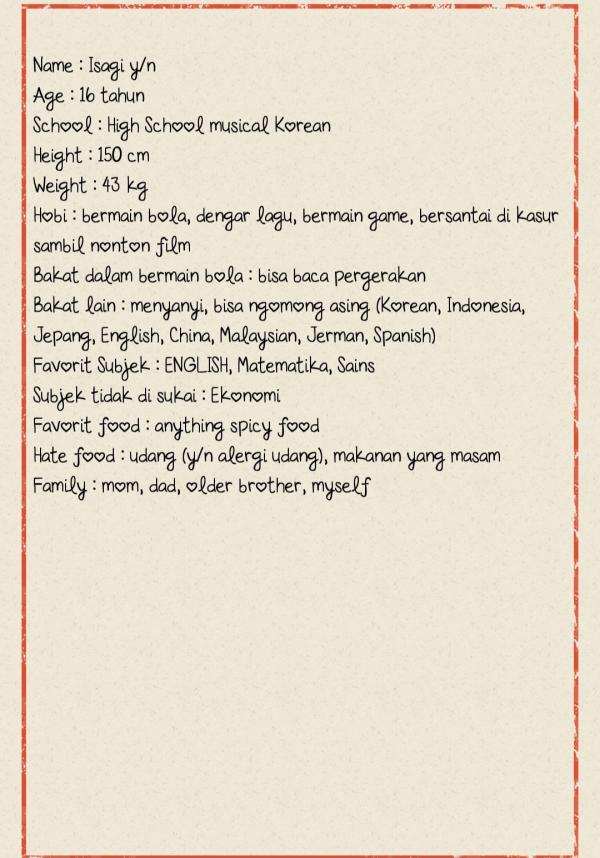 Name : Isagi y/n
Age : 16 tahun
School : High School musical Korean
Height : 150 cm
Weight : 43 kg
Hobi : bermain bola, dengar lagu, bermain game, bersantai di kasur
sambil nonton film
Bakat dalam bermain bola : bisa baca pergerakan
Bakat lain : menyanyi, bisa ngomong asing (Korean, Indonesia,
Jepang, English, China, Malaysian, Jerman, Spanish)
Favorit Subjek : ENGLISH, Matematika, Sains
Subjek tidak di sukai : Ekonomi
Favorit food : anything spicy food
Hate food : udang (y/n alergi udang), makanan yang masam
Family : mom, dad, older brother, myself